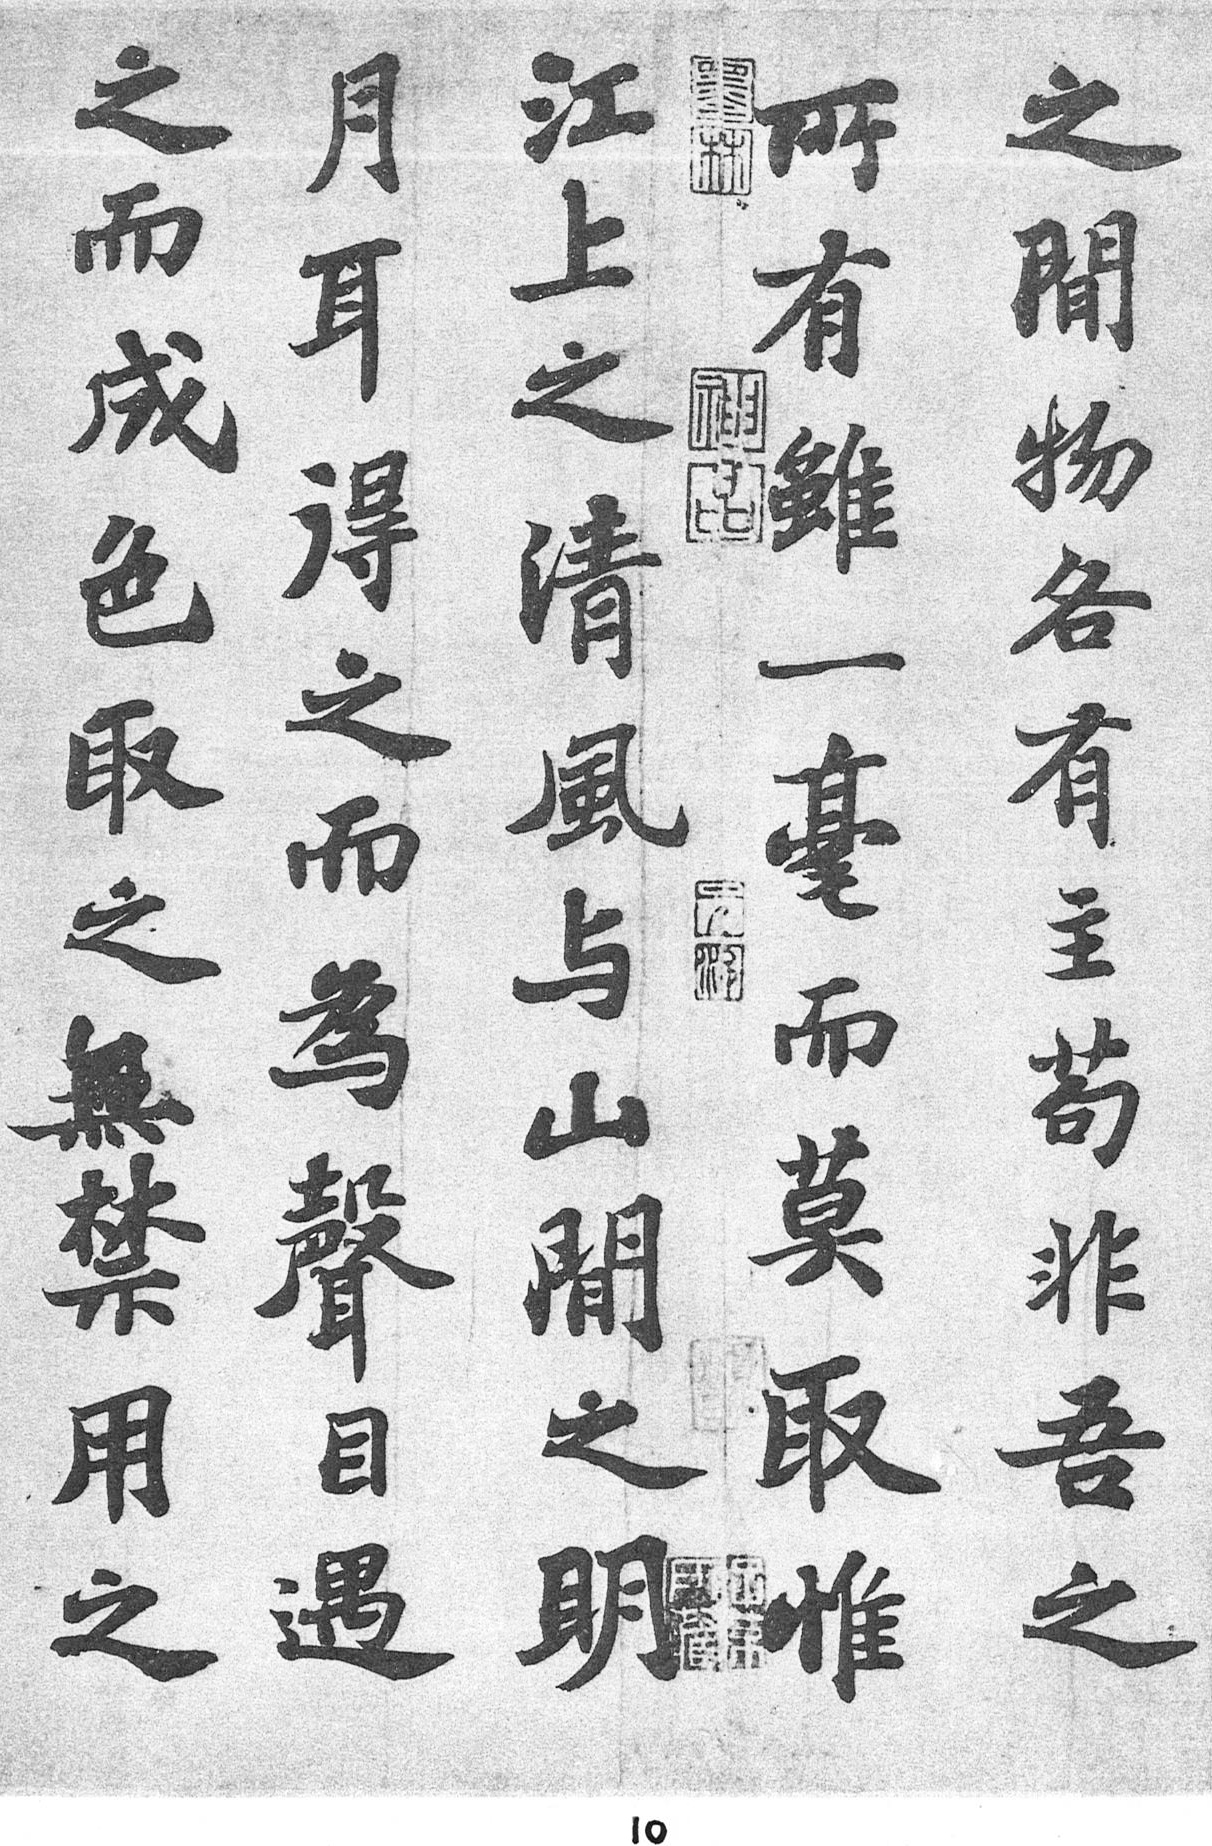 之間物各有主苟非吾之
所有雖一毫而莫取惟
江上之清風与山間之明
月耳得之而為聲目遇
之而成色取之無禁用之
10